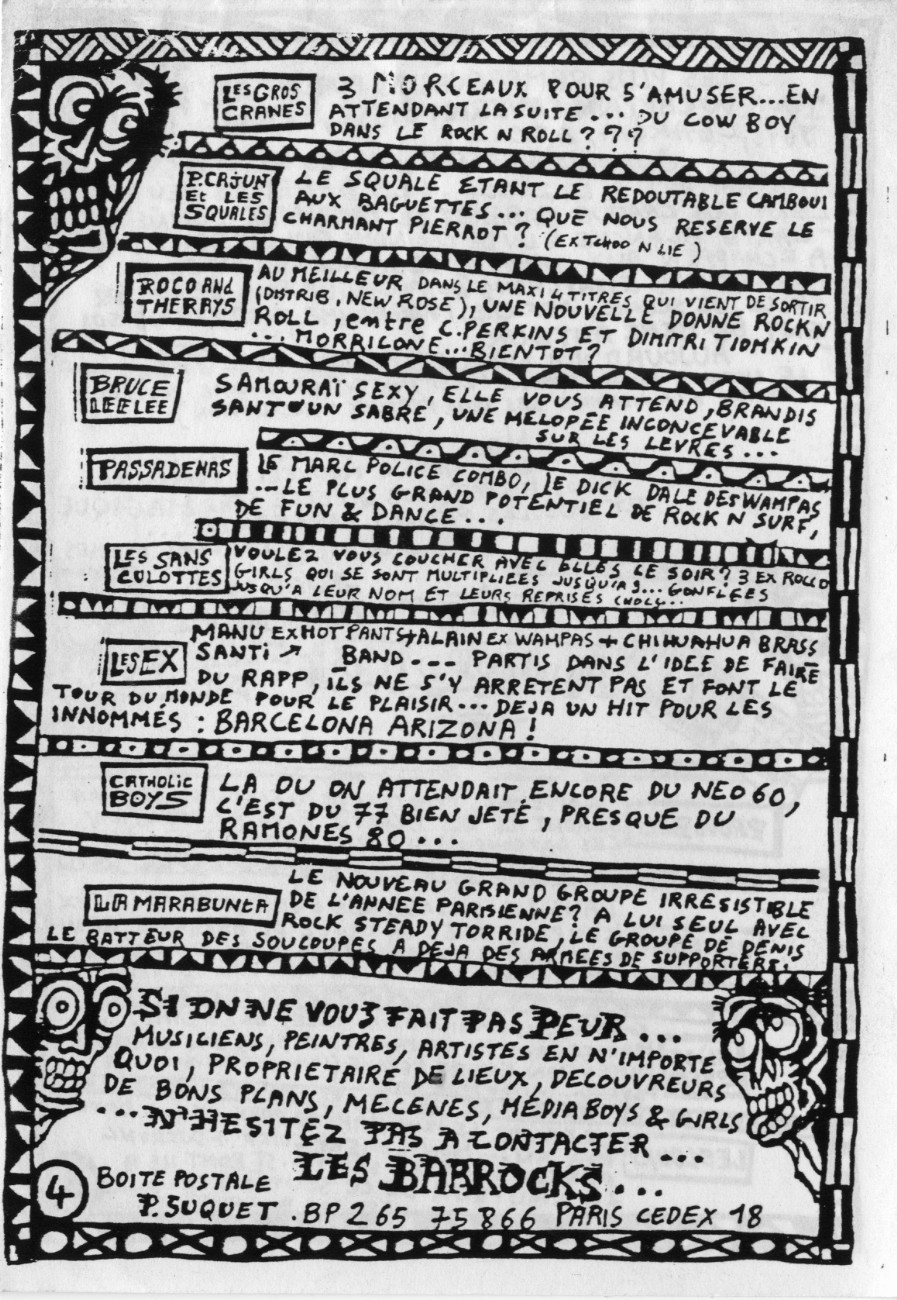 LES GROS
CRANES
3 MORCEAUX POUR S'AMUSER...EN
ATTENDANT LA SUITE... DU COW BOY
DANS LE ROCK N ROLL ? ? ?
P.CAJUN
Et LES
SQUALES
LE SQUALE ETANT LE REDOUTABLE CAMBOUI
AUX BAGUETTES... QUE NOUS RESERVE LE
CHARMANT PIERROT ? (EX TCHOO N LIE )
ROCO ANd
THE RAYS
AU MEILLEUR DANS LE MAXI 4 TITRES QUI VIENT DE SORTIR
(DISTRIB. NEW ROSE), UNE NOUVELLE DONNE ROCKN
ROLL, entre C.PERKINS ET DIMITRI TIOMKIN
...MORRICONE...BIENTOT?
BRUCE
LEE LEE
SAMOURAÏ SEXY, ELLE VOUS ATTEND, BRANDIS
SANT UN SABRE, UNE MELOPEE INCONCEVABLE
SUR LES LEVRES...
PASSADENAS
LE MARC POLICE COMBO, LE DICK DALE DES WAMPAS
...LE PLUS GRAND POTENTIEL DE ROCK N SURF,
DE FUN & DANCE...
LES SANS
CULOTTES
VOULEZ VOUS COUCHER AVEC ELLES CE SOIR? 3 EX ROCCO
GIRLS QUI SE SONT MULTIPLIEES JUSQU'A 9... GONFLEES
JUSQU'A LEUR NOM ET LEURS REPRISES CHOC...
LES EX
MANU EX HOT PANTS+ALAIN EX WAMPAS + CHIHUAHUA BRASS
SANTI ↗ BAND... PARTIS DANS L'IDEE DE FAIRE
DU RAPP, ILS NE S'Y ARRETENT PAS ET FONT LE
TOUR DU MONDE POUR LE PLAISIR...DEJA UN HIT POUR LES
INNOMMÉS : BARCELONA ARIZONA !
CATHOLIC
BOYS
LA OU ON ATTENDAIT ENCORE DU NEO 60,
C'EST DU 77 BIEN JETÉ, PRESQUE DU
RAMONES 80...
LA MARABUNTA
LE NOUVEAU GRAND GROUPE IRRESISTIBLE
DE L'ANNEE PARISIENNE? A LUI SEUL AVEC
ROCK STEADY TORRIDE, LE GROUPE DE DENIS
LE BATTEUR DES SOUCOUPES A DEJA DES ARMEES DE SUPPORTERS.
SI ON NE VOUS FAIT PAS PEUR...
MUSICIENS, PEINTRES, ARTISTES EN N'IMPORTE
QUOI, PROPRIETAIRE DE LIEUX, DECOUVREURS
DE BONS PLANS, MECENES, MEDIA BOYS & GIRLS
...N'HESITEZ PAS A CONTACTER ...
LES BARROCKS...
4
BOITE POSTALE
P. SUQUET . BP 265 75866 PARIS CEDEX 18